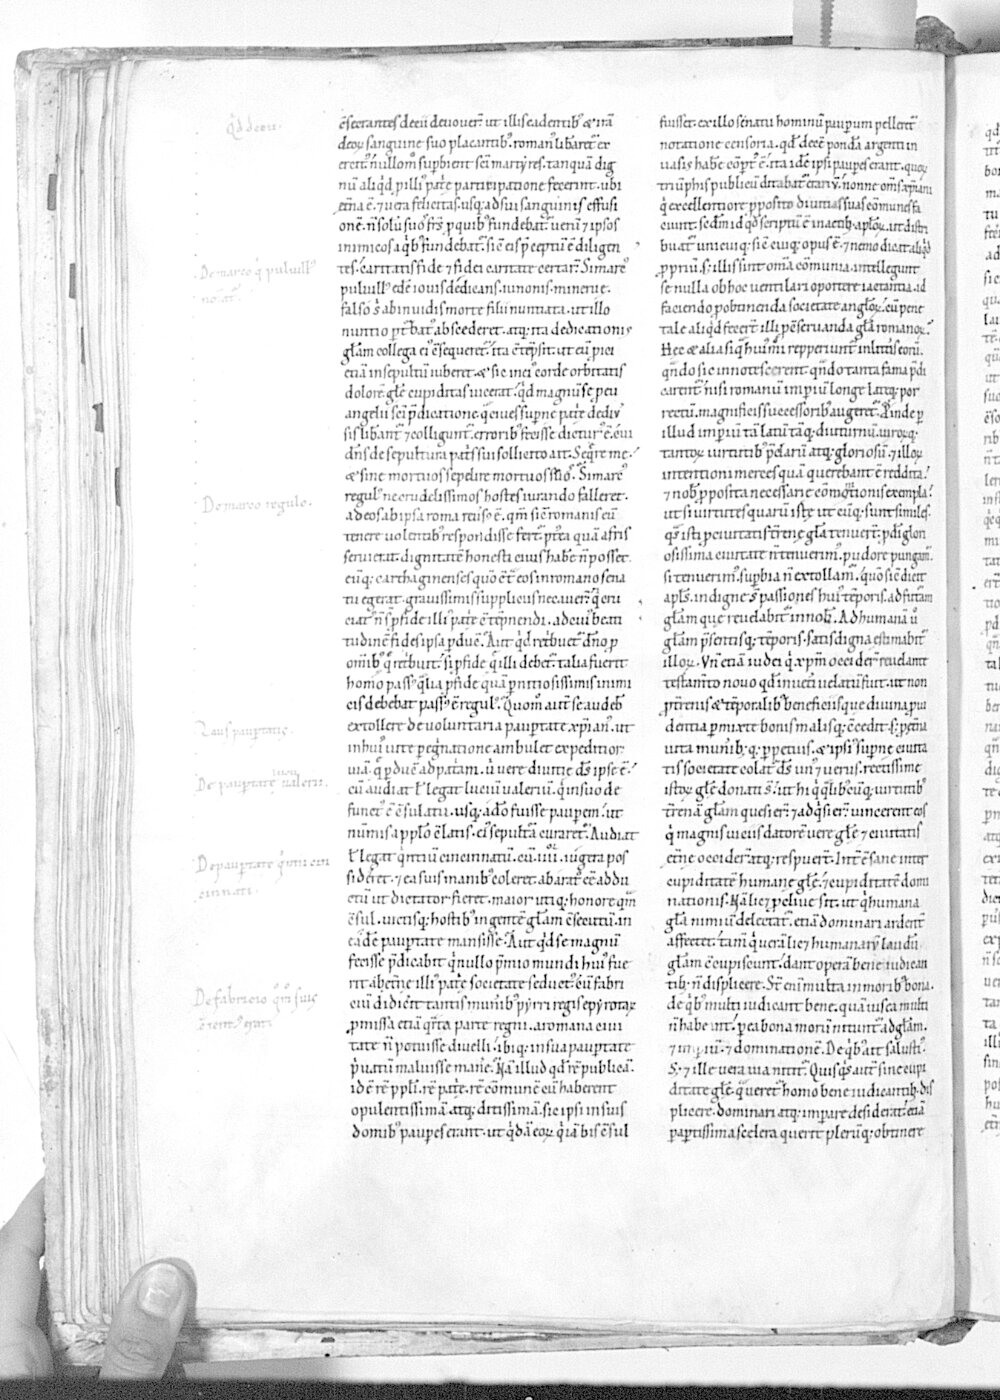 q̄d decii.
De marco q̇ puluillꝰ
De marco regulo.
Laus paup̄tatis.
De paup̄tate lucii ualerii.
De paup̄tate q̇ntii cin
cinnati.
De fabricio
c̄secrantes deciĩ deuouer̄. ut illis cadentibꝰ & irā
deoꝝ sanguine suo placantibꝰ. romanꝰ libaret̄ ex
ercitꝰ. n̄ ullom̊ supbient sc̄i martyres. tanquā dig
nū aliq̇d p illiꝰ pat̄e participatione fecerint. ubi
et̄na ē ⁊ uera felicitas. usq; ad sui sanguinis effusi
onē. n̄ solū suos fr̄s p quibꝰ fundebat̄. uerū ⁊ ipsos
inimicos a q̇bꝰ fundebat̄. sic eis p̄ceptū ē diligen
tes. caritatis fide ⁊ fidei caritate certar̄. Si marcꝰ
puluillꝰ edē iouis dedicans. iunonis. minerue.
falso s̄ ab inuidis morte filii nuntiata. ut illo
nuntio pt̄batꝰ abscederet. atq; ita dedicationis
gl̄am collega eiꝰ c̄seqeret̄. ita c̄tēpsit. ut eū pici
etiā insepultū iuberet. & sic in eiꝰ corde orbitatis
dolorē. gl̄e cupiditas uicerat. q̇d magnū se p eu
angelii sc̄i p̄dicatione. q̇ ciues sup̄ne pat̄e de diuꝰ
sis liberant̄ ⁊ colligunt̄. erroribꝰ fecisse dicturꝰ ē. cui
dn̄s de sepultura pat̄s sui sollicito ait. Seq̄re me.
& sine mortuos sepelire mortuos suos. Si marcꝰ
regulꝰ ne crudelissimos hostes iurando falleret.
ad eos ab ipsa roma reuersꝰ ē. qm̄ sic romanis eū
tenere uolentibꝰ respondisse fert̄. p̊tea quā afris
seruierat. dignitatē honesti ciuis habe n̄ posset.
eūq; carthaginenses quō c̄t eos in romano sena
tu egerat. grauissimis suppliciis necauer̄. q̇ cru
ciatꝰ n̄ s̄ p fide illiꝰ pat̄e c̄tēpnendi. ad cuiꝰ beati
tudinē fides ipsa p̄ducē. Aut q̇d ret̄buet̄ dn̄o p
om̄ibꝰ q̄ ret̄buit. si p fide q̄ illi debet̄. talia fuerit
homo passꝰ q̄lia p fide quā p̄nitiosissimis inimi
cis debebat passꝰ ē regulꝰ. Quom̊ aut̄ se audebꝰ
extollere de uoluntaria paup̄tate xp̄ianꝰ. ut
in huiꝰ uite pegnatione ambulet expeditior
uiā. q̄ p̄ducē ad patriam. ū uere diuitie ds̄ ipse ē.
cū audiat ł legat luciū ualeriū. q̇ in suo de
functꝰ ē c̄sulatu. usq; adeo fuisse paupem. ut
nūmis a ppl̄o c̄latis. ei sepultā curaret̄. Audiat
ł legat q̇ntiū cincinnatū. cū .iiii. iugera pos
sideret. ⁊ ea suis manibꝰ coleret. ab aratꝰ eē addu
ctū ut dictator fieret. maior utiq; honore qm̄
c̄sul. uictisq; hostibꝰ ingentē gl̄am c̄secutū. in
eadē paup̄tate mansisse. Aut q̇d se magnū
fecisse p̄dicabit q̇ nullo p̄mio mundi huiꝰ fue
rit ab et̄ne illiꝰ pat̄e societate seductꝰ. cū fabri
ciū didicit tantis munibꝰ pyrri regis epyrotaꝝ
ꝓmissa etiā q̄rta parte regni. a romana ciui
tate n̄ potuisse diuelli. ibiq; in sua paup̄tate
p̊uatū maluisse manē. Nā illud qd̊ rē publicā.
id ē rē ppl̄i. rē pat̄e. rē cōmunē cū haberent
opulentissimā atq; ditissimā. sic ipsi in suis
domibꝰ paupes erant. ut q̇dā eoꝝ q̇ iā bis c̄sul
fuisset. ex illo senatu hominū paupum pelleret̄
notatione censoria. q̇d decē ponda argenti in
uasis habē c̄optꝰ ē. ita idē ipsi paupes erant. quoꝝ
triūphis publicū ditabat̄ erariū. nonne om̄s xp̄iani
q̇ excellentiore p̊posito diuitias suas cōmunes fa
ciunt. sedm id qd̊ scriptū ē in actibꝰ aploꝝ. ut distri
buat̄ unicuiq; sic cuiq; opus ē. ⁊ nemo dicat aliq̇d
ꝓpriū. s; illis sint om̄ia cōmunia. intellegunt
se nulla ob hoc uentilari oportere iactantia. id
faciendo p obtinenda societate angloꝝ. cū pene
tale aliq̇d fecert̄ illi p c̄seruanda gl̄a romanoꝝ.
Hec & alia siq̇ huiꝰm̊i repperiunt̄ in litt̄is eoꝝ.
qn̄do sic innotescerent. qn̄do tanta fama p̄di
carent̄. nisi romanū impiū longe lateq; por
rectū. magnificis successoribꝰ augeret̄. Proinde p
illud impiū tā latū tāq; diuturnū. uiroꝝq;
tantoꝝ uirtutibꝰ p̄clarū atq; gloriosū. ⁊ illoꝝ
intentioni merces quā querebant ē reddita.
⁊ nobꝰ ꝓposita necessarie cōmonitionis exempla.
ut si uirtutes quarū iste utcūq; sunt similes.
q̄s isti p ciuitatis t̄rene gl̄a tenuert̄. p di glori
osissima ciuitate n̄ tenuerimꝰ. pudore pungam̄.
si tenuerimꝰ. supbia n̄ extollam̄. quō sic dicit
apl̄s. indigne s̄ passiones huiꝰ tēporis. ad futam
gl̄am que reuelabit̄ in nobꝰ. Ad humanā ū
gl̄am p̄sentisq; tēporis. satis digna estimabit̄
illoꝝ. Vn̄ etiā iudei q̇ xp̄m occider̄. reuelante
testam̄to nouo qd̊ in ueti uelatū fuit. ut non
p t̄renis & tēporalibꝰ beneficiis que diuina pui
dentia pmixte bonis malisq; c̄cedit. s; p et̄na
uita munibꝰq; ppetuis. & ipsiꝰ sup̄ne ciuita
tis societate colat̄ ds̄ unꝰ ⁊ uerus. rectissime
istoꝝ gl̄e donati s̄. ut hi q̇ q̇libꝰcūq; uirtutibꝰ
t̄renā gl̄am quesier̄. ⁊ adq̇sier̄. uincerent eos
q̇ magnis uiciis datorē uere gl̄e ⁊ ciuitatis
et̄ne occider̄. atq; respuert̄. Int̄ ē sane inter
cupiditatē humane gl̄e. ⁊ cupiditatē domi
nationis. Nā licꝫ pcliue sit. ut q̇ humana
gl̄a nimiū delectat̄. etiā dominari ardent̄
affectet. tam̄ q̇ uerā licꝫ humanarū laudū
gl̄am c̄cupiscunt. dant operā bene iudican
tibꝰ. n̄ displicere. St̄ enī multa in moribꝰ bona.
de q̇bꝰ multi iudicant bene. quāuis ea multi
n̄ habeant. p ea bona morū nitunt̄ ad gl̄am.
⁊ impiū. ⁊ dominationē. De q̇bꝰ ait salustiꝰ.
S; ⁊ ille uera uia nitit̄. Quisq̇s aut̄ sine cupi
ditate gl̄e. q̄ ueret̄ homo bene iudicantibꝰ dis
plicere. dominari atq; impare desiderat. etiā
p aptissima scelera querit plerūq; obtinere